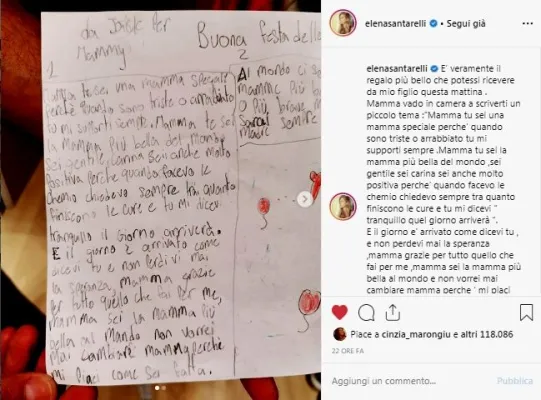 da Jack Per
Mammy
Buona festa delle
1
2
mamma tu sei una mamma speciale
perchè quando sono triste o arrabbiato
tu mi supporti sempre. Mamma te sei
la mamma più bella del mondo
sei gentile, carina sei anche molto
positiva perche quando facevo le
chemio chiedevo sempre tra quanto
finiscono le cure e tu mi dicevi
tranquillo il giorno arriverà.
E il giorno è arrivato come
dicevi tu e non perdevi mai
la speranza mamma grazie
per tutto quello che fai per me,
mamma sei la mamma più
bella al mondo non vorrei
mai cambiare mamma perchè
mi piaci come sei fatta.
Al mondo ci so
mamme più b
o più brave, m
sarai sempre
elenasantarelli • Segui già
elenasantarelli E' veramente il
regalo più bello che potessi ricevere
da mio figlio questa mattina .
Mamma vado in camera a scriverti un
piccolo tema :"Mamma tu sei una
mamma speciale perche' quando
sono triste o arrabbiato tu mi
supporti sempre .Mamma tu sei la
mamma più bella del mondo ,sei
gentile sei carina sei anche molto
positiva perche' quando facevo le
chemio chiedevo sempre tra quanto
finiscono le cure e tu mi dicevi "
tranquillo quel giorno arriverà ".
E il giorno e' arrivato come dicevi tu ,
e non perdevi mai la speranza
,mamma grazie per tutto quello che
fai per me ,mamma sei la mamma più
bella al mondo e non vorrei mai
cambiare mamma perche ' mi piaci
Piace a cinzia_marongiu e altri 118.086
22 ORE FA
Aggiungi un commento...
Pubblica